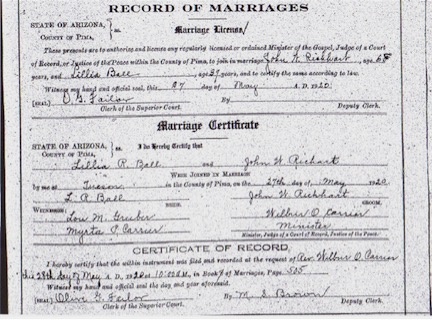 RECORD OF MARRIAGES
STATE OF ARIZONA, } ss. Marriage License
COUNTY OF PIMA,
These presents are to authorize and license any regularly licensed or ordained Minister of the Gospel, Judge of a Court
of Record, or Justice of the Peace within the County of Pima, to join in marriage John W. Richhart, aged 65
years, and Lillia Ball aged 59 years, and to certify the same according to law.
Witness my hand and official seal, this 27 day of May A. D. 1920
(SEAL) O. G. Failor By
Clerk of the Superior Court. Deputy Clerk.
Marriage Certificate
STATE OF ARIZONA, } ss. I do Hereby Certify that
COUNTY OF PIMA,
Lillia R. Ball and John W. Richart
WERE JOINED IN MARRIAGE
by me at Tucson in the County of Pima, on the 27th day of May 1920
L. R. Ball John W. Richhart
WITNESSES: GROOM.
Lou M. Wilbur O. Carrier
Myrta P. Carrier Minister
Minister, Judge of a Court of Record, Justice of the Peace.
CERTIFICATE OF RECORD
I hereby certify that the within instrument was filed and recorded at the request of Rev. Wilbur O. Carrier
this 28th day of May A. D. 1920 at 10:00 A.M. in Book of Marriages, Page 505
Witness my hand and official the day and year aforesaid.
(SEAL) Olive G. Failor By M. S. Brown
Clerk of the Superior Court. Deputy Clerk.